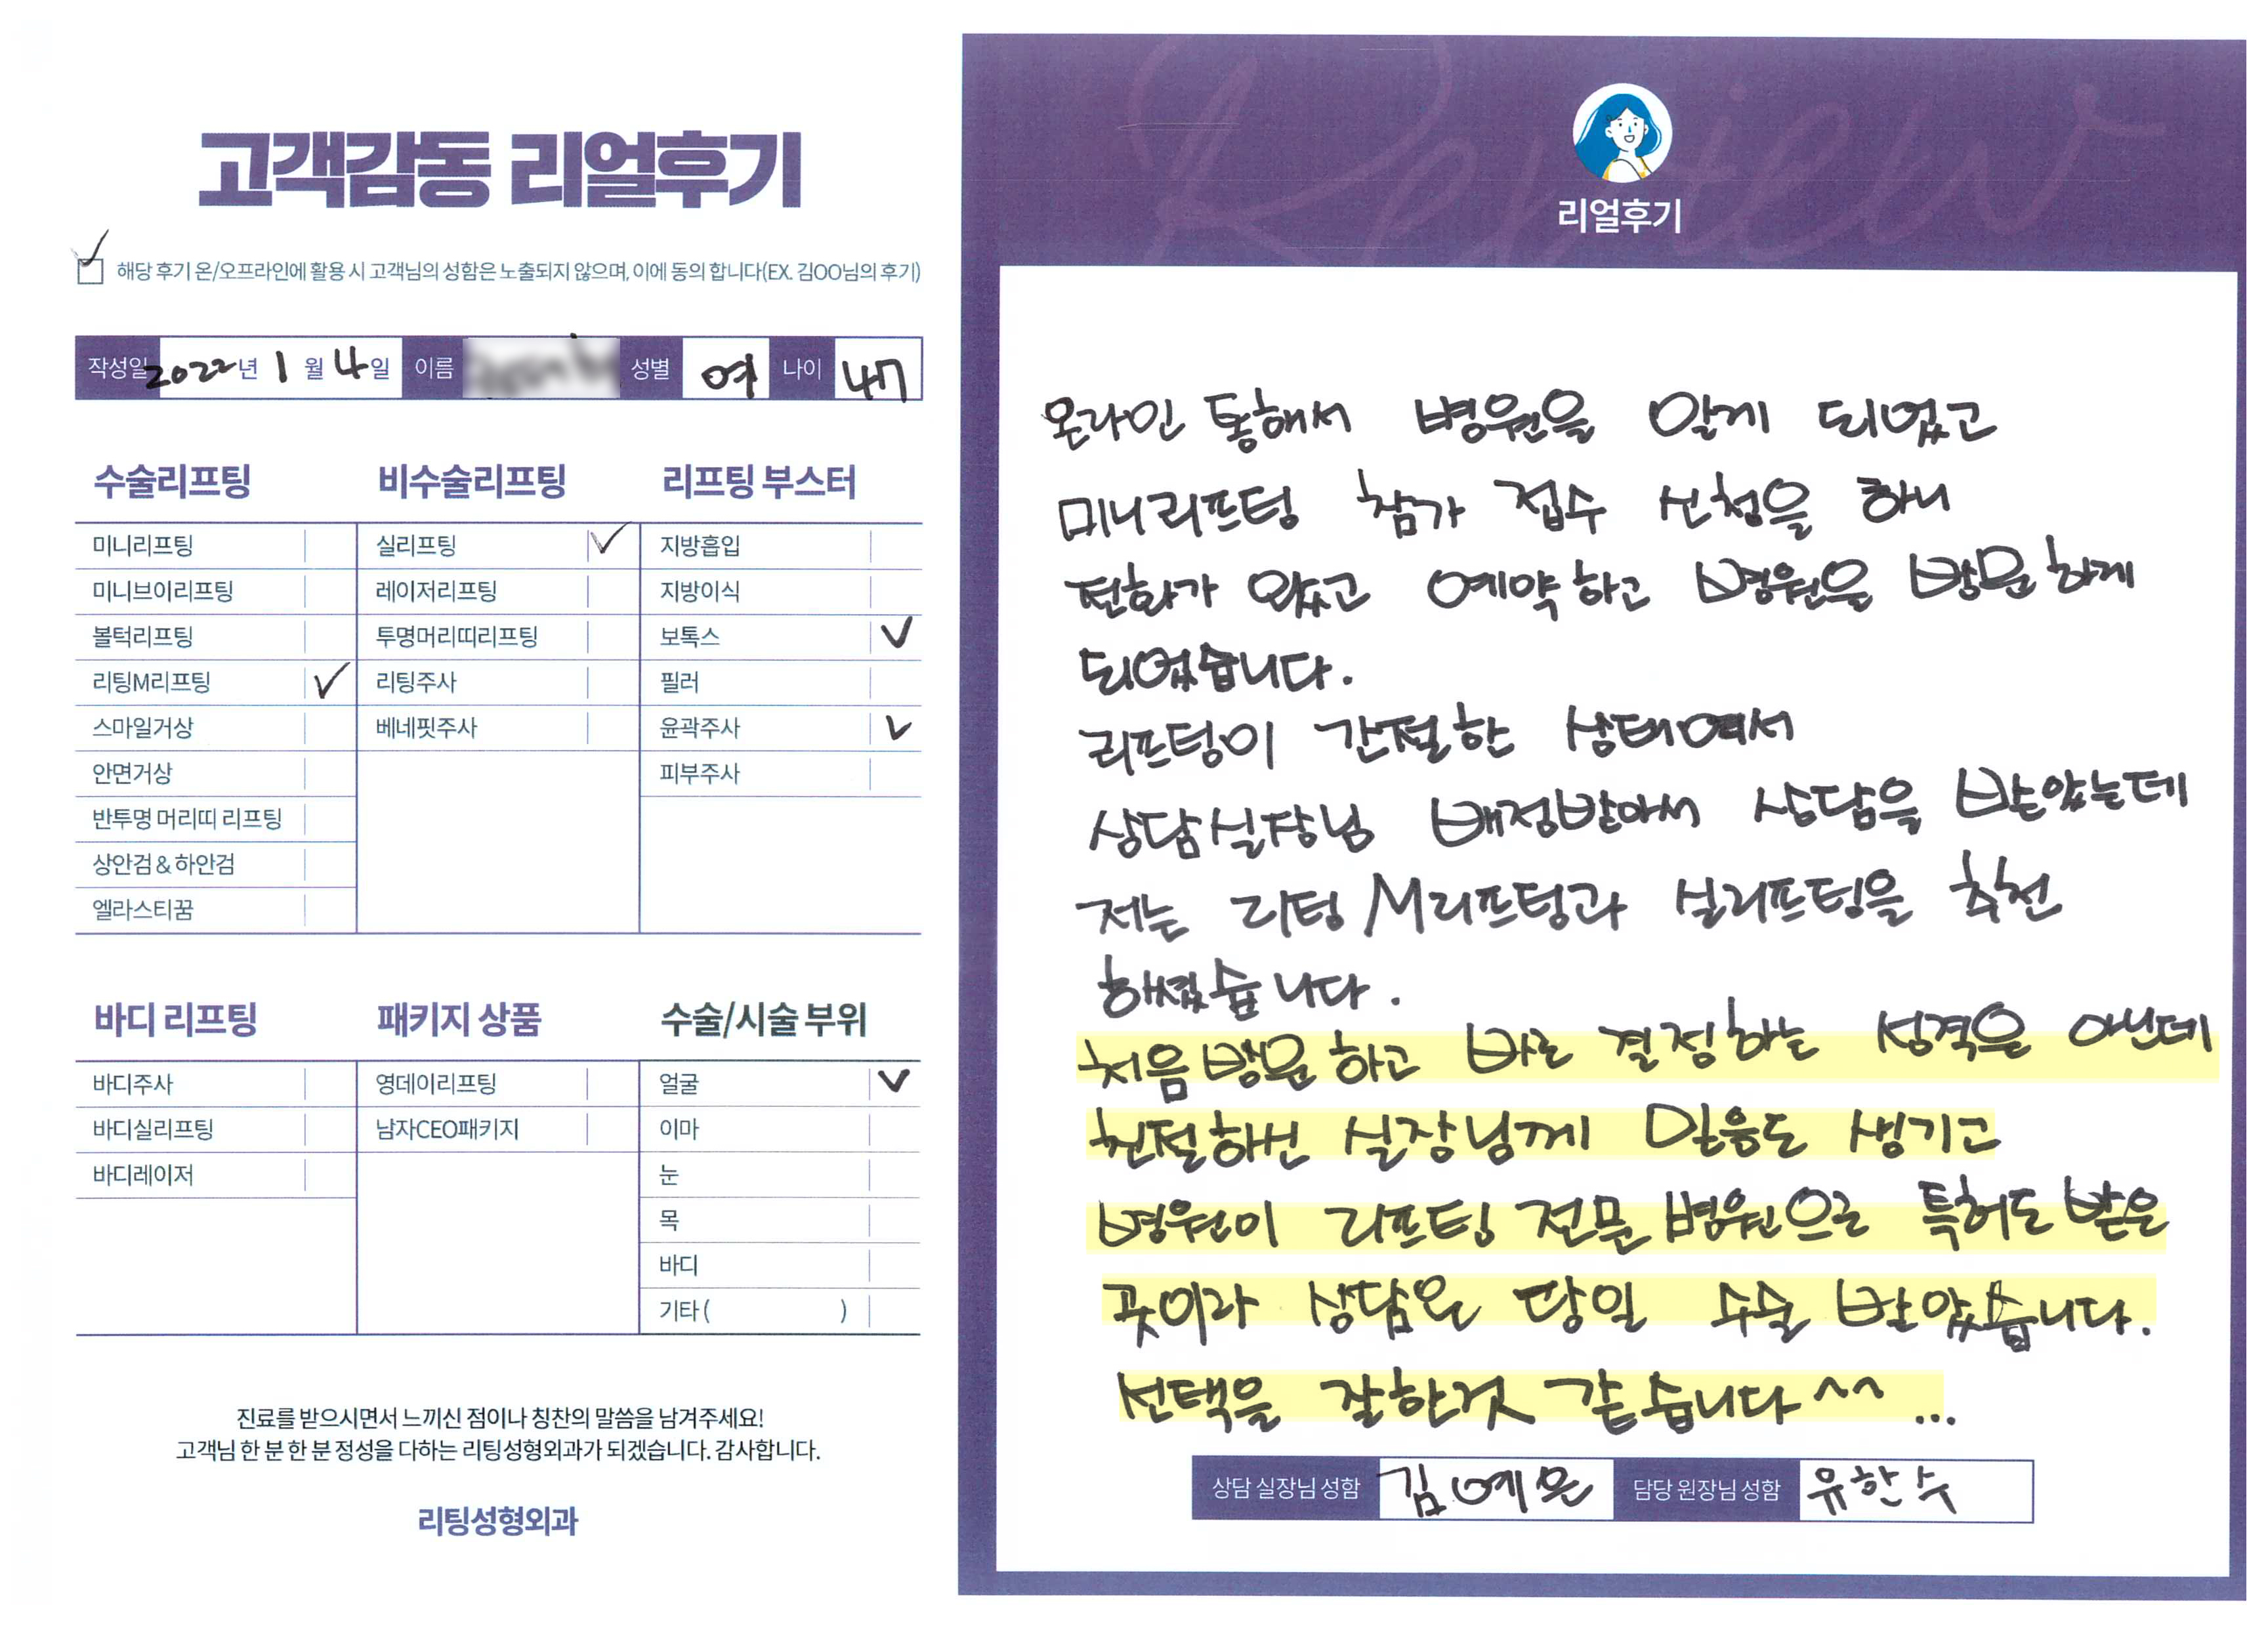 고객감동 리얼후기
해당 후기 온/오프라인에 활용 시 고객님의 성함은 노출되지 않으며, 이에 동의 합니다(EX. 김OO님의 후기)
작성일 2022년 1월 4일 이름 성별 여 나이 47
수술리프팅
미니리프팅
미니브이리프팅
볼턱리프팅
리팅M리프팅
스마일거상
안면거상
반투명 머리띠 리프팅
상안검 & 하안검
엘라스티꿈
비수술리프팅
실리프팅
레이저리프팅
투명머리띠리프팅
리팅주사
베네핏주사
리프팅 부스터
지방흡입
지방이식
보톡스
필러
윤곽주사
피부주사
바디 리프팅
바디주사
바디실리프팅
바디레이저
패키지 상품
영데이리프팅
남자CEO패키지
수술/시술 부위
얼굴
이마
눈
목
바디
기타 ( )
진료를 받으시면서 느끼신 점이나 칭찬의 말씀을 남겨주세요!
고객님 한 분 한 분 정성을 다하는 리팅성형외과가 되겠습니다. 감사합니다.
리팅성형외과
Review
리얼후기
온라인 통해서 병원을 알게 되었고
미니리프팅 참가 접수 신청을 하니
전화가 왔고 예약하고 병원을 방문하게
되었습니다.
리프팅이 간절한 상태여서
상담실장님 배정받아서 상담을 받았는데
저는 리팅 M리프팅과 실리프팅을 추천
하셨습니다.
처음 방문하고 바로 결정하는 성격은 아닌데
친절하신 실장님께 믿음도 생기고
병원이 리프팅 전문병원으로 특허도 받은
곳이라 상담온 당일 수술 받았습니다.
선택을 잘한것 같습니다^^...
상담 실장님 성함 김예은 담당 원장님 성함 유한수